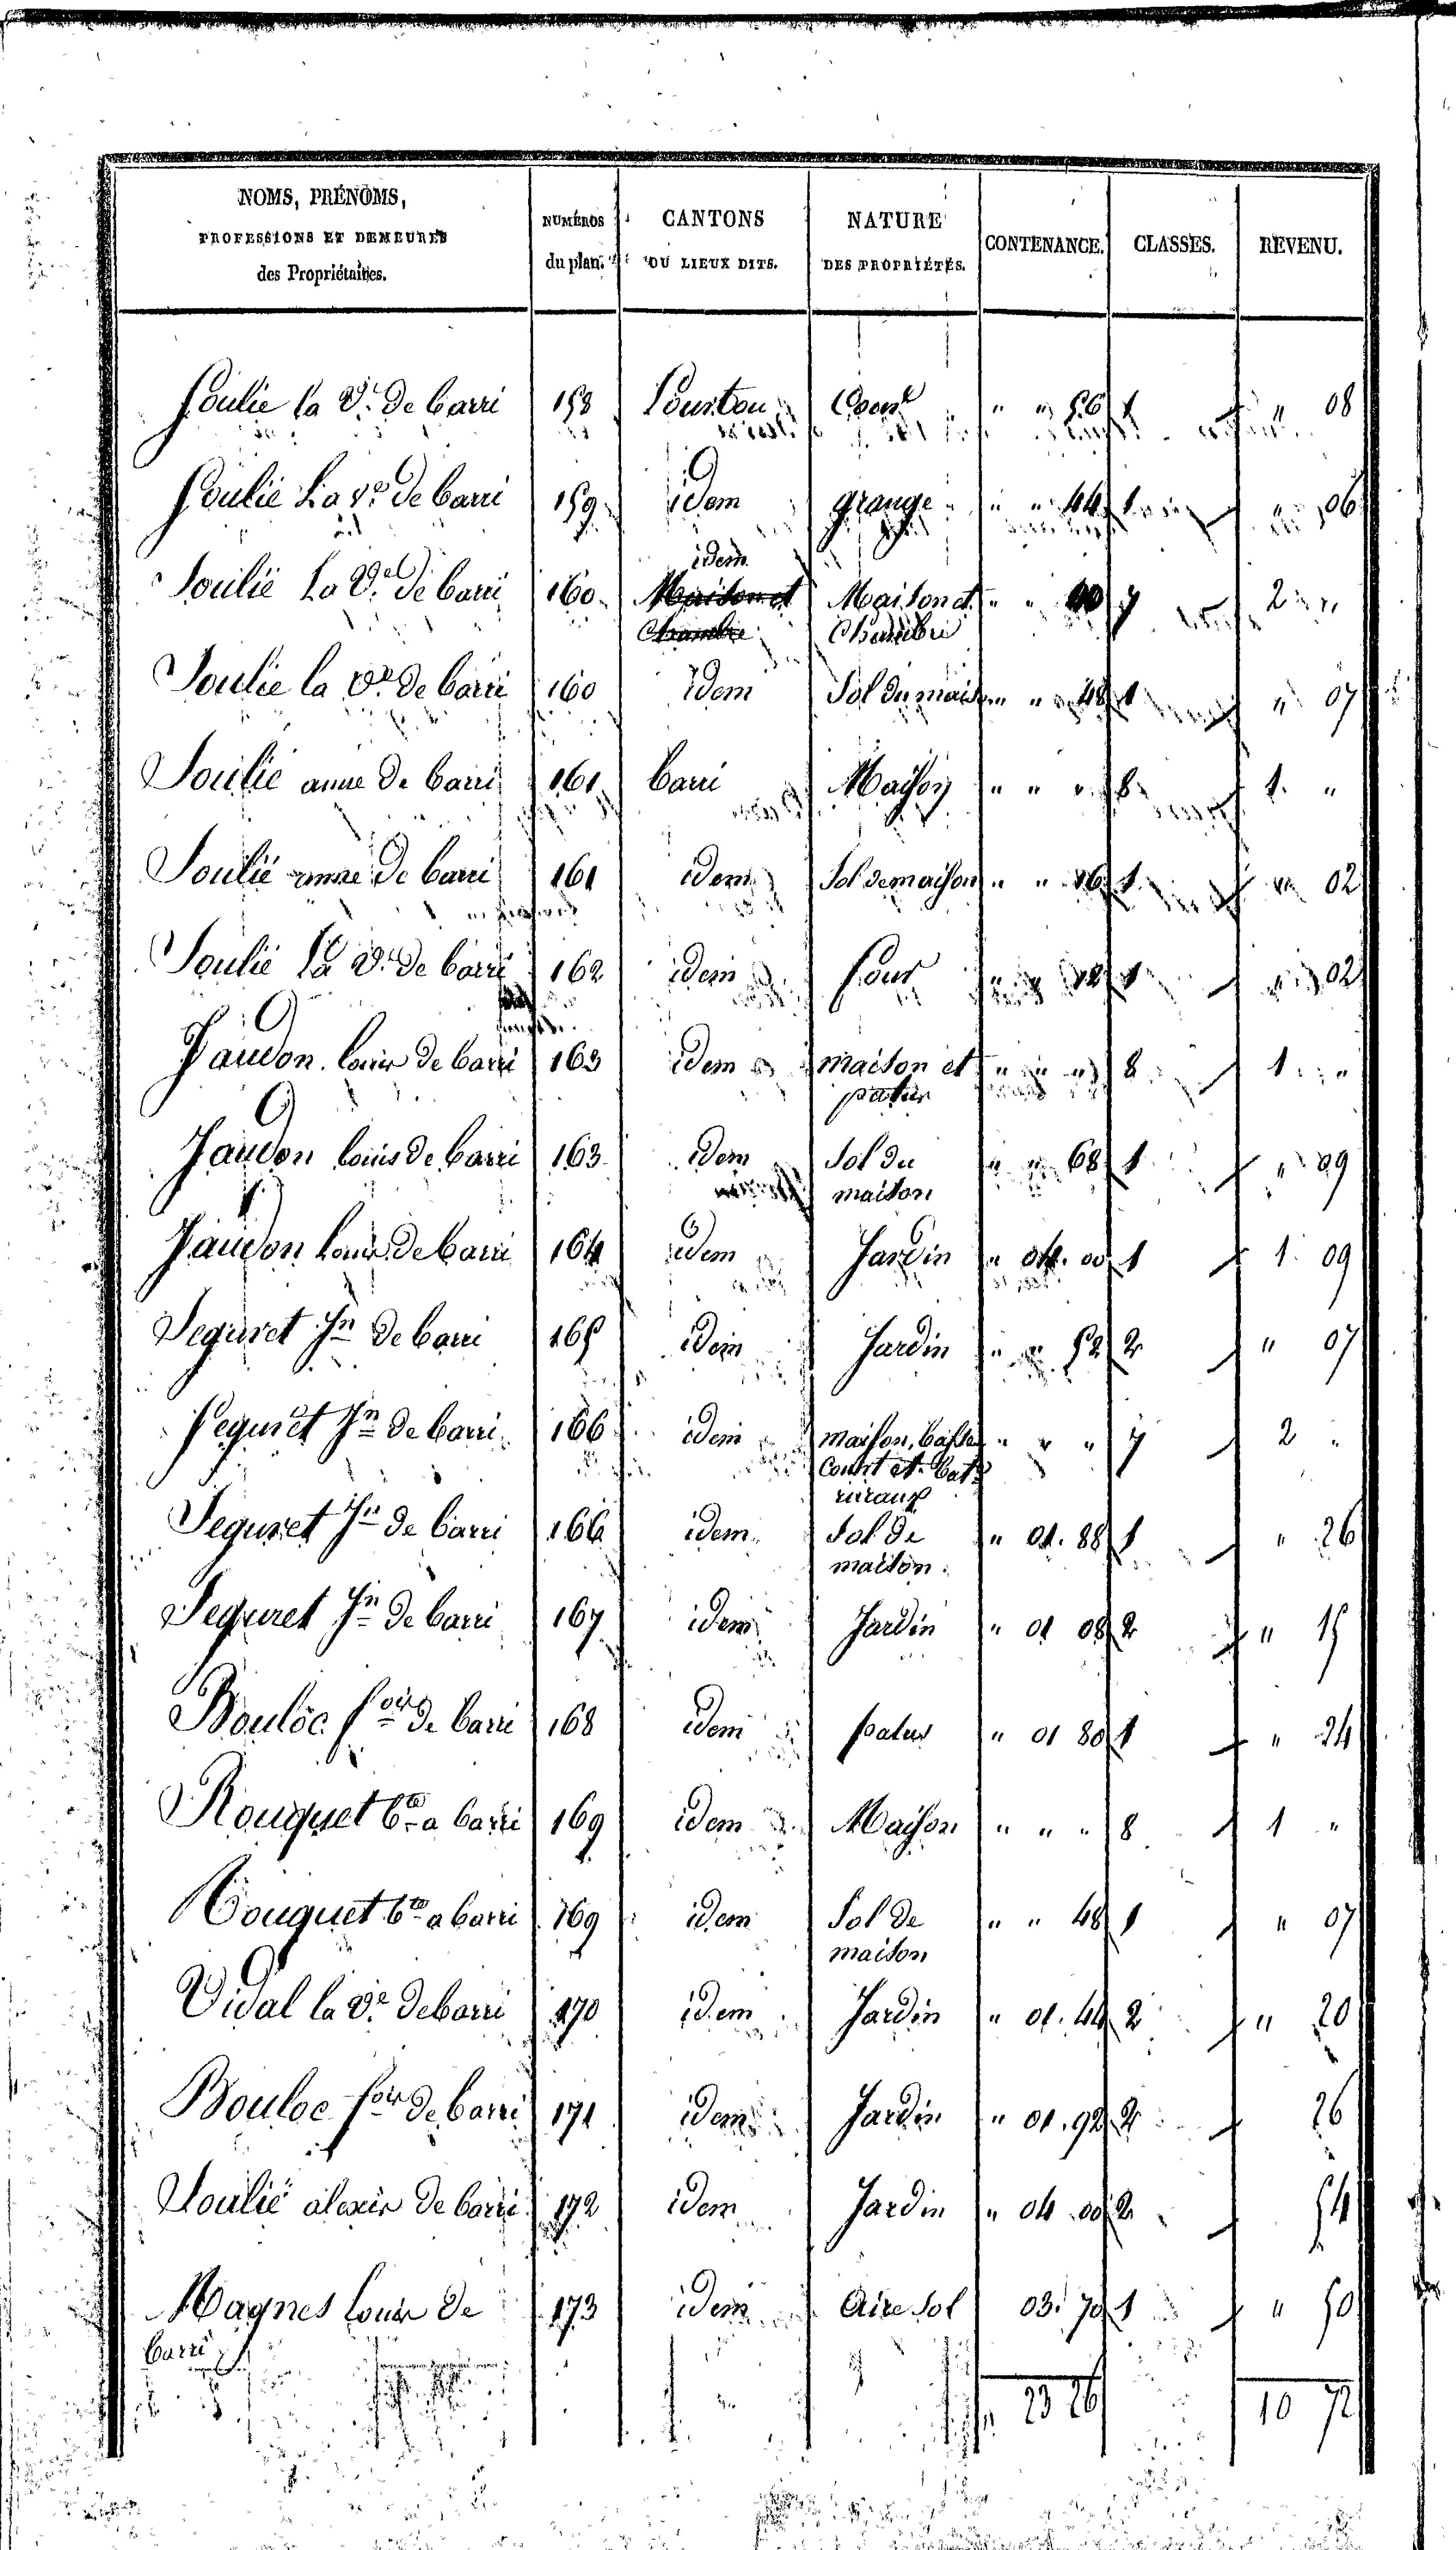 NOMS, PRÉNOMS, PROFESSIONS ET DEMEURES des Propriétaires. NUMÉROS du plan. CANTONS OU LIEUX DITS. NATURE DES PROPRIÉTÉS. CONTENANCE. CLASSES. REVENU.
Soulié la Ve de barri 158 Court " " 56 1 " 08
Soulié La ve de barri 159 idem grange " " 44 1 " 06
Soulié La Ve de barri 160 idem Maison et Chambre " " 7 2 "
Maison et Chambre
Soulié la Ve de barri 160 idem Sol du maison " " 48 1 " 07
Soulié anne de barri 161 barri Maison " " " 8 1 "
Soulié anne de barri 161 idem Sol de maison " " 16 1 " 02
Soulié la Ve de barri 162 idem four " " 12 1 " 02
Jaudon louis de barri 163 idem maison et patus " " " 8 1 "
Jaudon louis de barri 163 idem Sol du maison " " 68 1 " 09
Jaudon louis de barri 164 idem Jardin " 04. 00 1 1 09
Seguret Jn de barri 165 idem Jardin " " 52 2 " 07
Seguret Jn de barri 166 idem maison, basse Court et bats ruraux " " " 7 2 "
Seguret Jn de barri 166 idem Sol de maison " 01. 88 1 " 26
Seguret Jn de barri 167 idem Jardin " 01 08 2 " 15
Bouloc fois de barri 168 idem patus " 01 80 1 " 24
Rouquet bte a barri 169 idem Maison " " " 8 1 "
Rouquet bte a barri 169 idem Sol de maison " " 48 1 " 07
Vidal la Ve de barri 170 idem Jardin " 01. 44 2 " 20
Bouloc fois de barri 171 idem Jardin " 01. 92 2 26
Soulié alexis de barri 172 idem Jardin " 04. 00 2 54
Magnes louis de barri 173 idem Aire Sol 03. 70 1 " 50
23 26 10 72